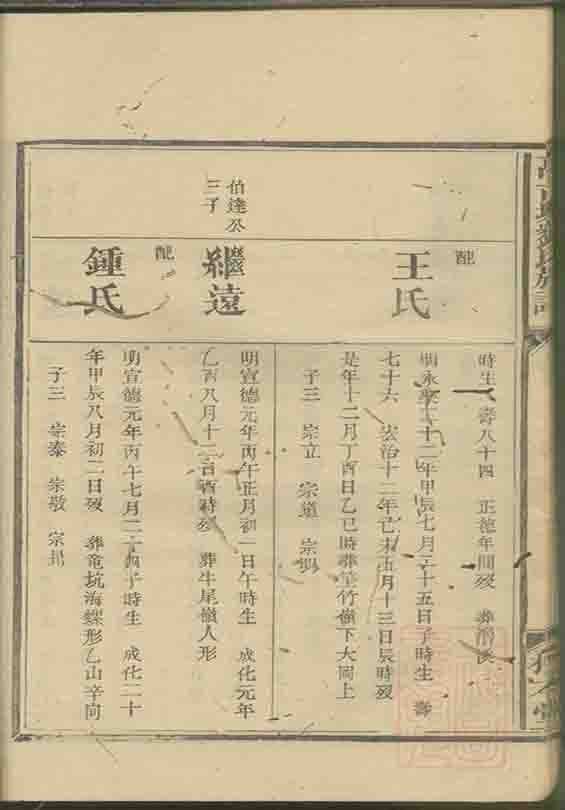 時生 壽八十四 正德年間歿 葬
配
王氏
明永樂二十二年甲辰七月二十五日子時生 壽
七十六 弘治十二年己未五月十三日辰時歿
是年十二月丁酉日乙巳時葬筀竹嶺下大岡上
子三 宗立 宗
伯達公
三子
繼遠
明宣德元年丙午正月初一日午時生 成化元年
乙酉八月十二日酉時歿 葬牛尾嶺人形
配
鍾氏
明宣德元年丙午七月二十四子時生 成化二十
年甲辰八月初二日歿 葬竜坑海螺形乙山辛向
子三 宗泰 宗敬 宗